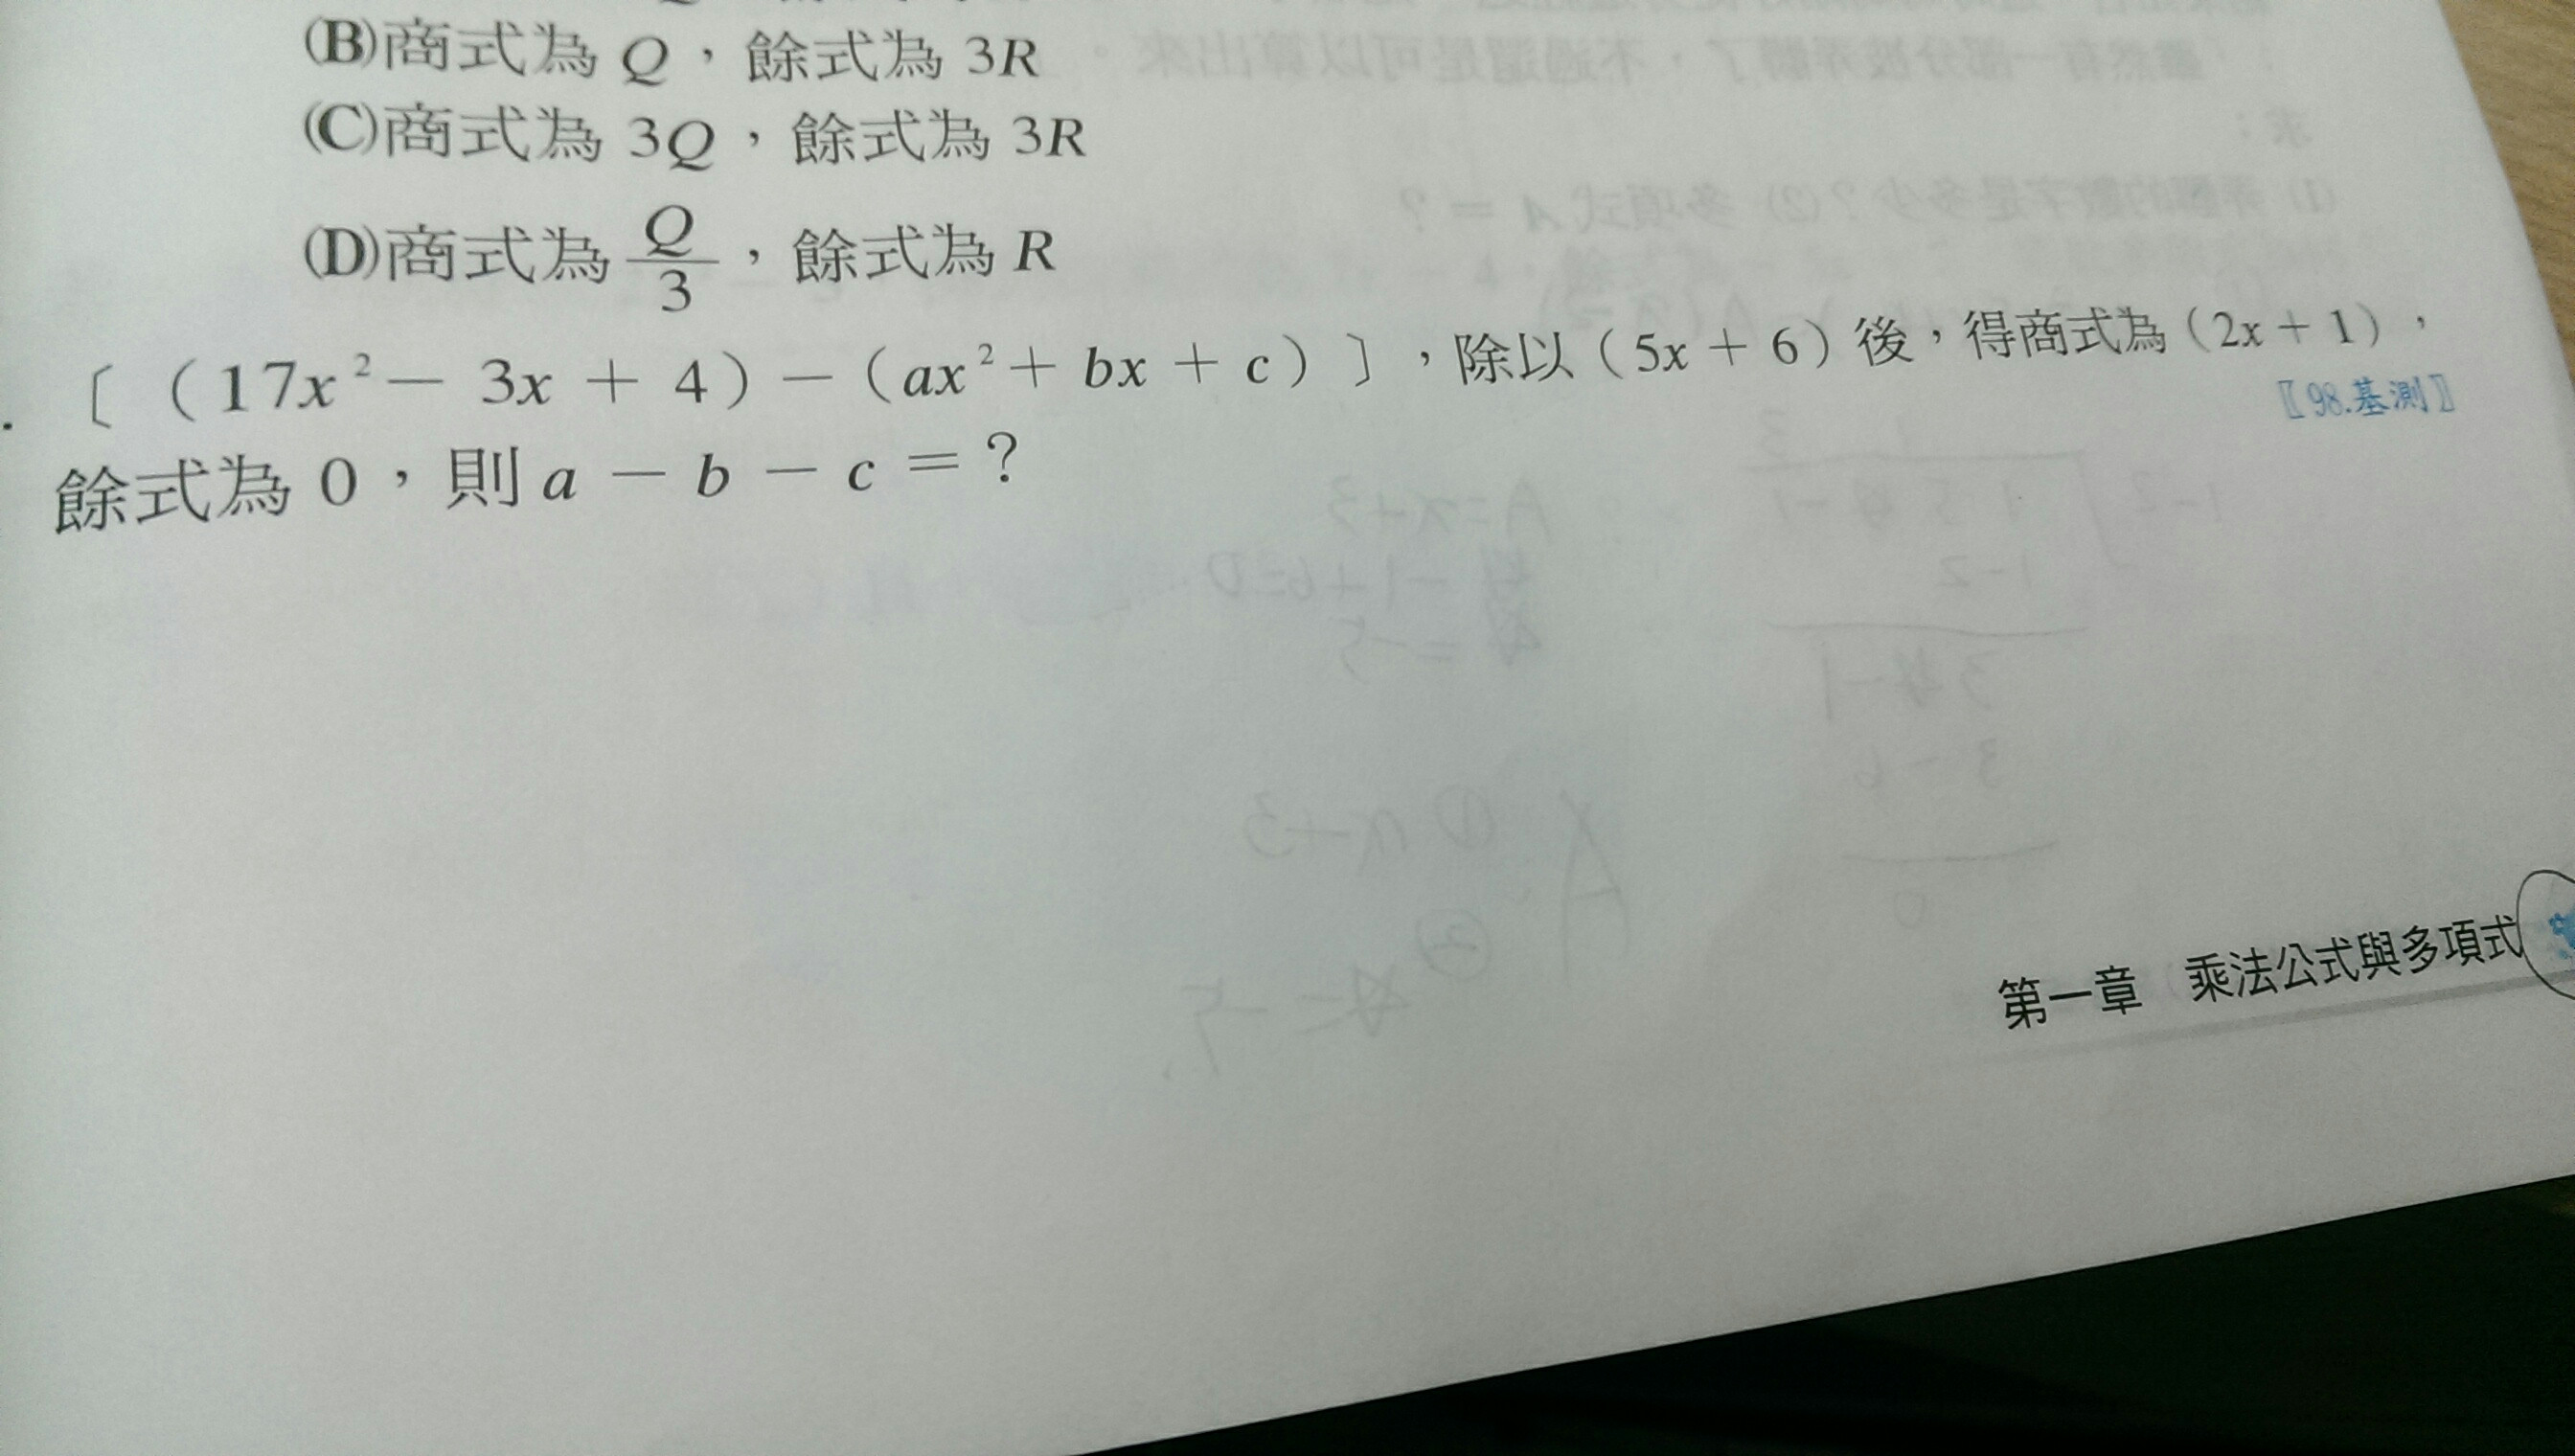 (B)商式為 Q，餘式為 3R
(C)商式為 3Q，餘式為 3R
(D)商式為 Q/3，餘式為 R
．〔（17x²－ 3x ＋ 4）－（ax²＋ bx ＋ c）〕，除以（5x ＋ 6）後，得商式為（2x ＋ 1），
餘式為 0，則 a － b － c ＝？
〖98.基測〗
第一章 乘法公式與多項式